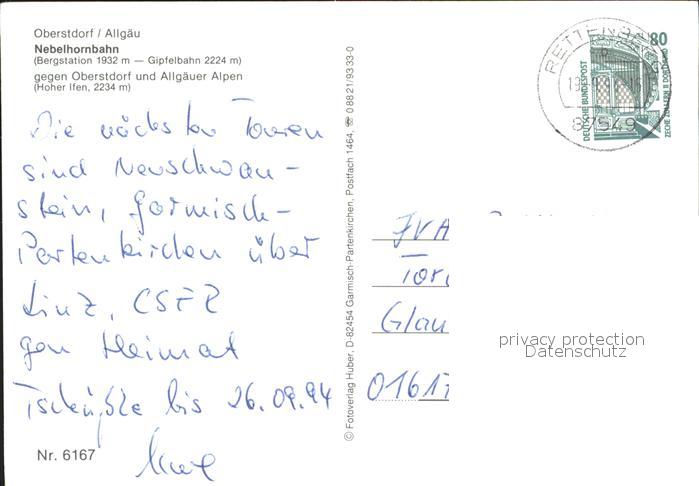 Oberstdorf / Allgäu
Nebelhornbahn
(Bergstation 1932 m — Gipfelbahn 2224 m)
gegen Oberstdorf und Allgäuer Alpen
(Hoher Ifen, 2234 m)
Die nächsten Touren
sind Neuschwan-
stein, Garmisch-
Partenkirchen über
Linz, CSFR
gen Heimat
Tschüßle bis 26.09.94
Nr. 6167
© Fotoverlag Huber, D-82454 Garmisch-Partenkirchen, Postfach 1464, ☎ 08821/9330-0
RETTENBERG
87549
80
DEUTSCHE BUNDESPOST
ZECHE ZOLLERN II DORTMUND
JVA
Tor
Glau
01617
privacy protection
Datenschutz